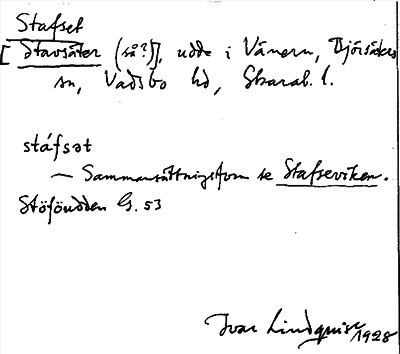 Stafset
[Stavsäter (så?)], udde i Vänern, Björsäters
sn, Vadsbo hd, Skarab. l.
stáfsət
— Sammansättningsform se Stafseviken.
Stöföudden G. 53
Ivar Lindquist 1928